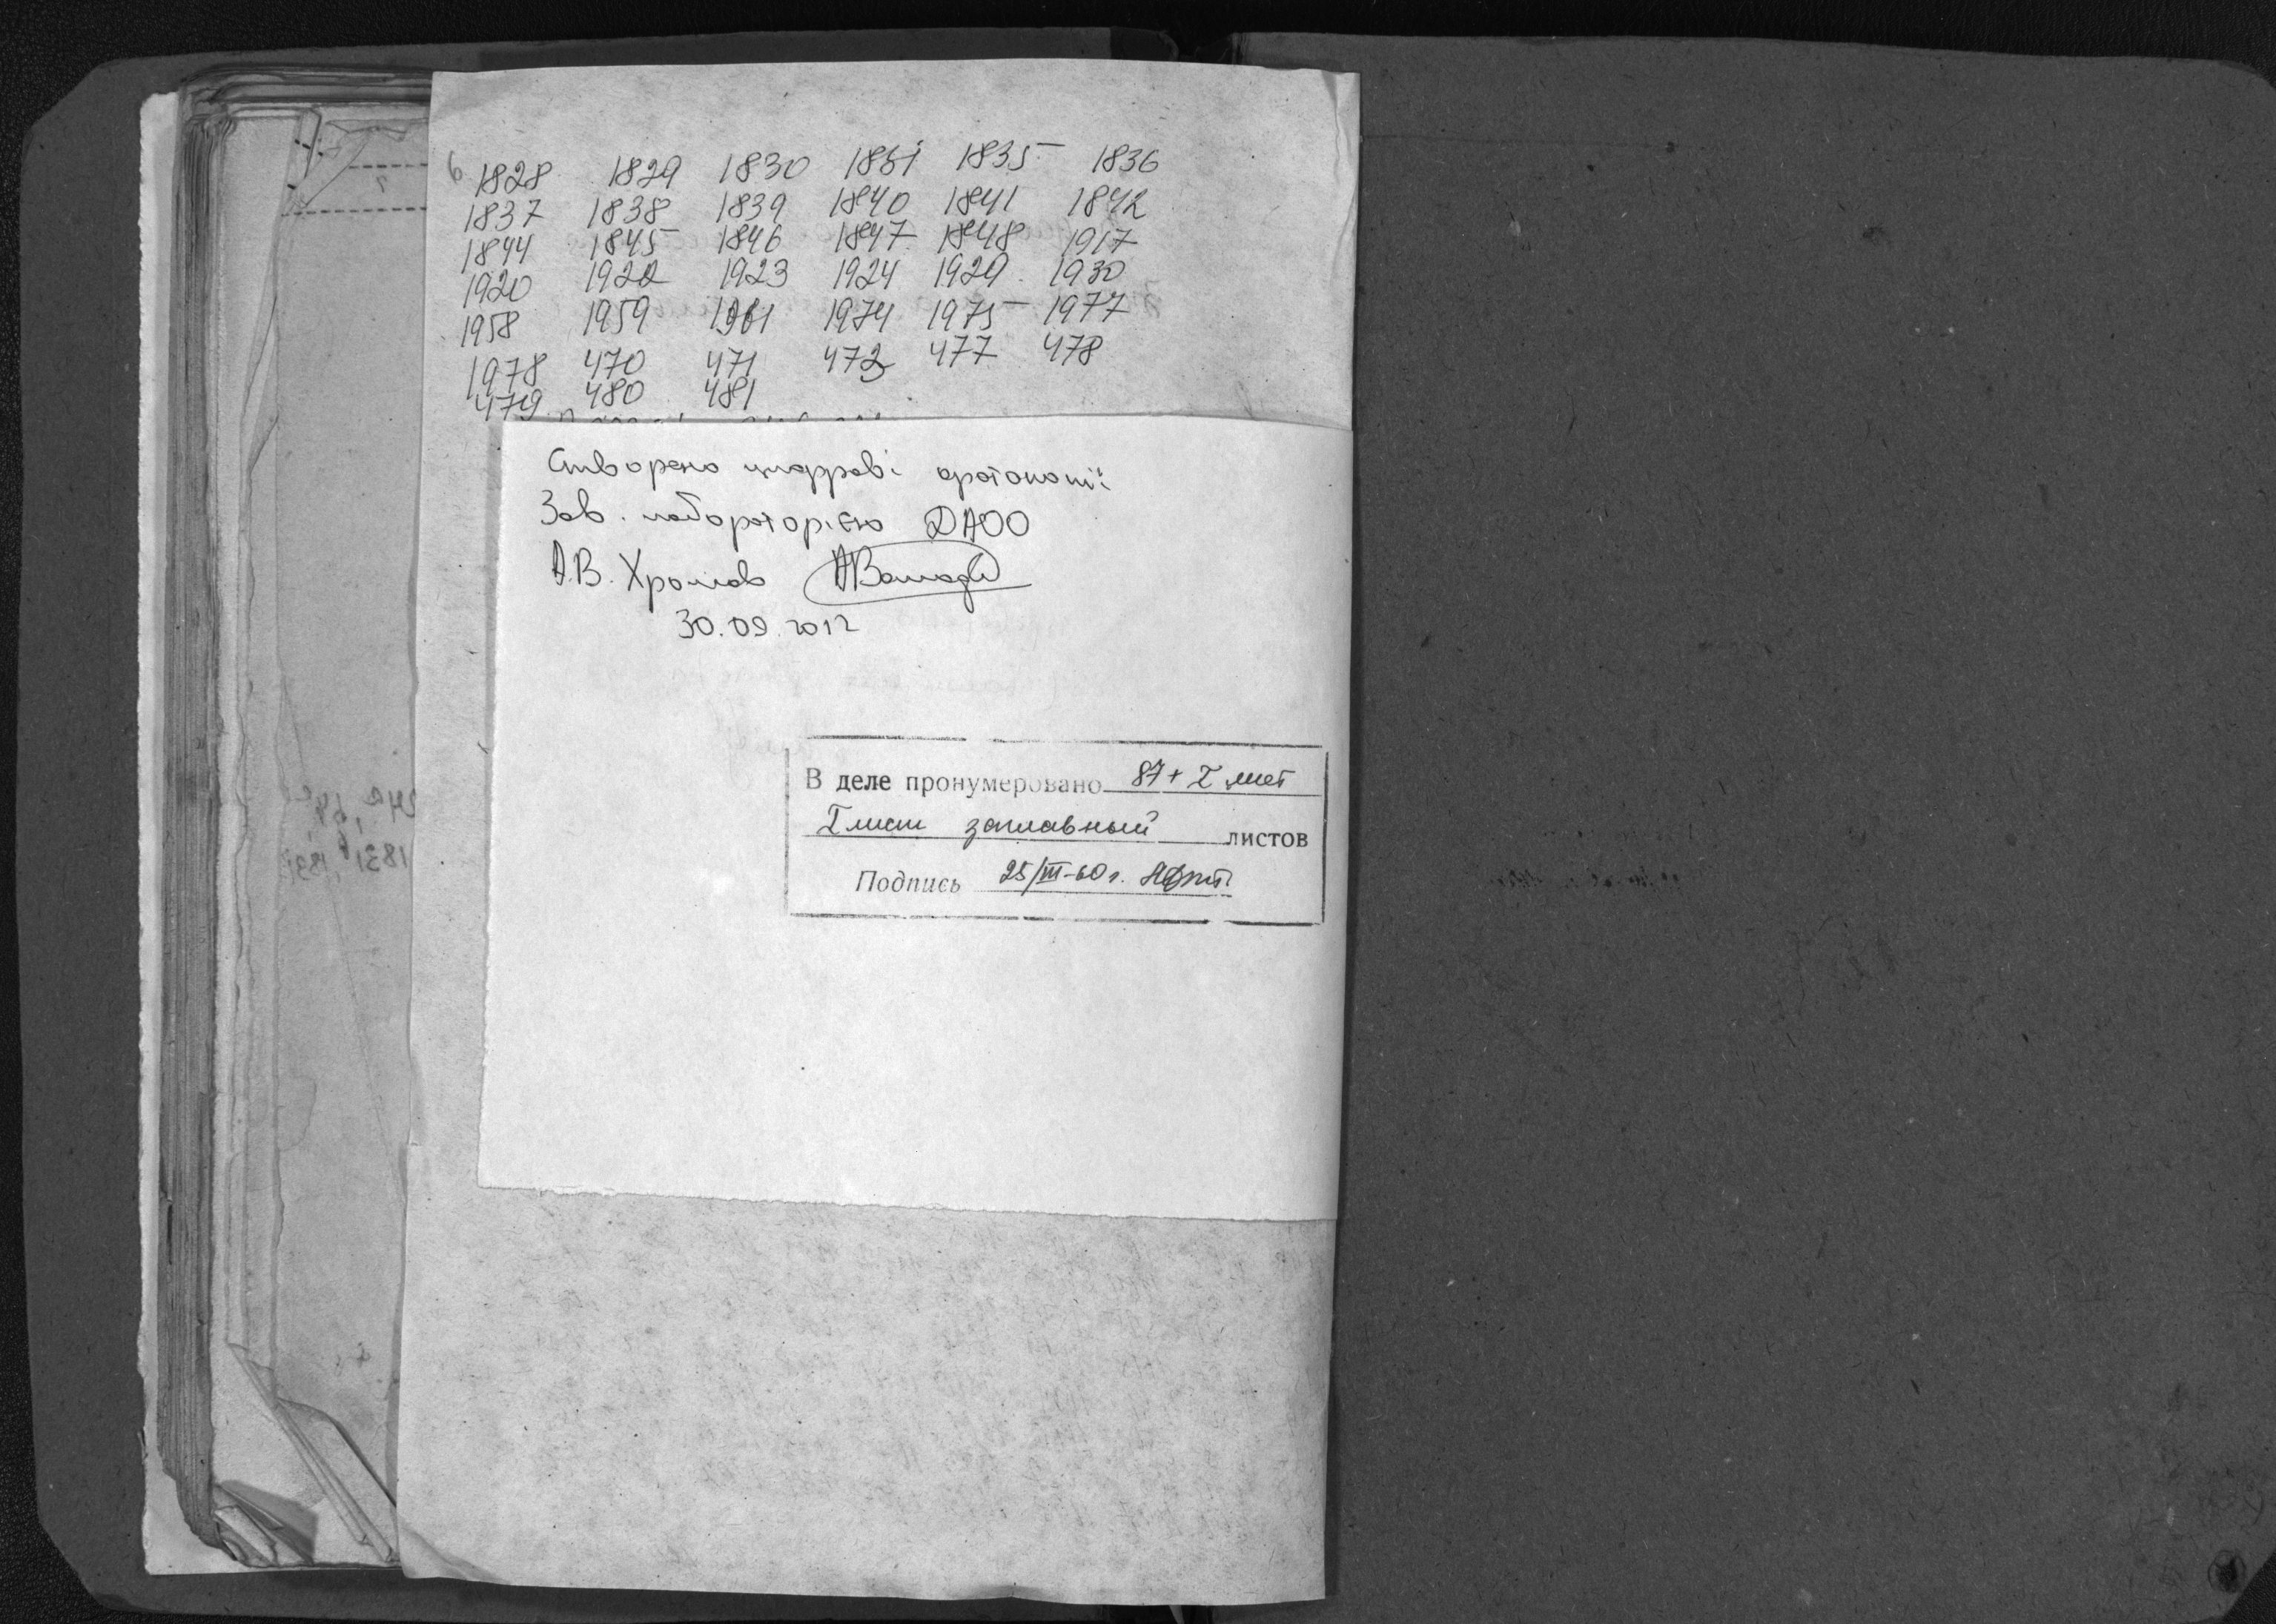 1828 1829 1830 1831 1835 1836
1837 1838 1839 1840 1841 1842
1844 1845 1846 1847 1848 1917
1920 1922 1923 1924 1929 1930
1958 1959 1961 1974 1975 1977
1978 470 471 472 477 478
479 480 481
Створено цифрові фотокопії
Зав. лабораторією ДАОО
А.В. Хромов
30.09.2012
В деле пронумеровано 87 + I лист
I лист заглавный листов
Подпись 25/III-60 г.
1831, 1831